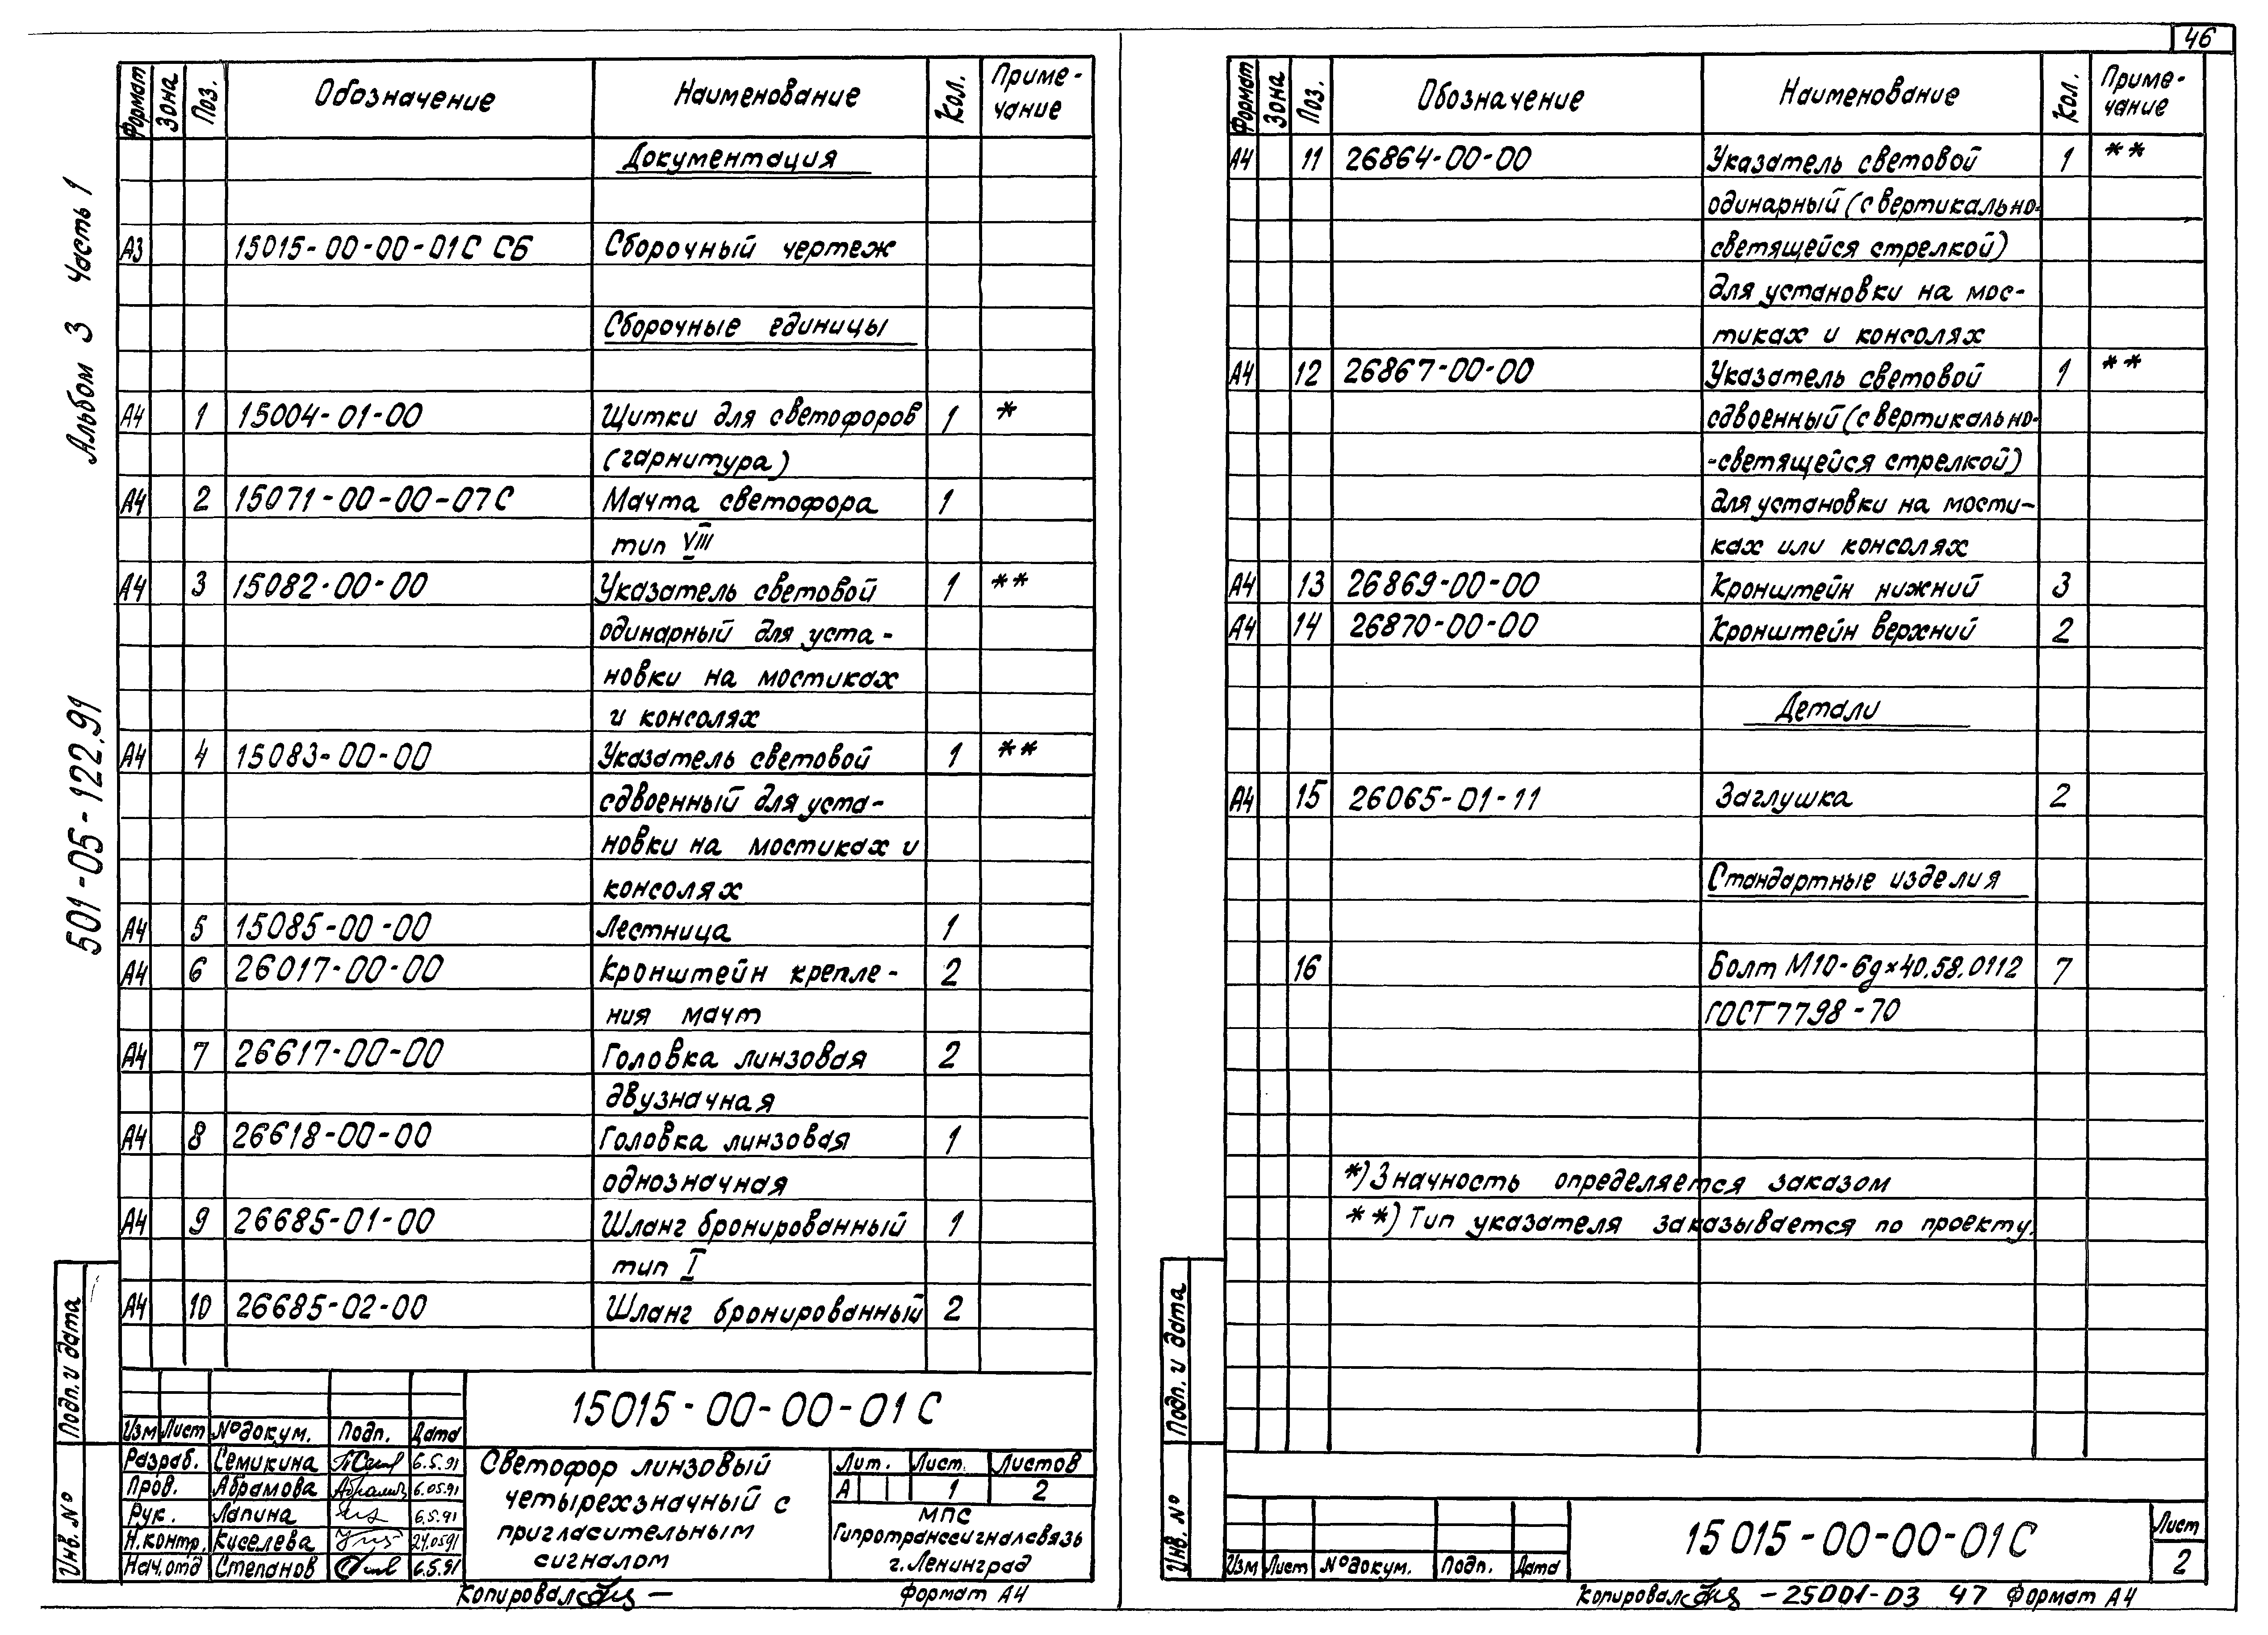 46
Альбом 3 Часть 1
501-05-122.91
Формат Зона Поз. Обозначение Наименование Кол. Приме-
чание
Документация
А3 15015-00-00-01С СБ Сборочный чертеж
Сборочные единицы
А4 1 15004-01-00 Щитки для светофоров 1 *
(гарнитура)
А4 2 15071-00-00-07С Мачта светофора 1
тип VIII
А4 3 15082-00-00 Указатель световой 1 **
одинарный для уста-
новки на мостиках
и консолях
А4 4 15083-00-00 Указатель световой 1 **
сдвоенный для уста-
новки на мостиках и
консолях
А4 5 15085-00-00 Лестница 1
А4 6 26017-00-00 Кронштейн крепле- 2
ния мачт
А4 7 26617-00-00 Головка линзовая 2
двузначная
А4 8 26618-00-00 Головка линзовая 1
однозначная
А4 9 26685-01-00 Шланг бронированный 1
тип I
А4 10 26685-02-00 Шланг бронированный 2
Подп. и дата
Инв. №
15015-00-00-01С
Изм Лист № докум. Подп. Дата
Разраб. Семикина 6.5.91
Пров. Абрамова 6.05.91
Рук. Лапина 6.5.91
Н.контр. Киселева 24.0591
Нач.отд Степанов 6.5.91
Светофор линзовый
четырехзначный с
пригласительным
сигналом
Лит. Лист. Листов
А 1 2
МПС
Гипротранссигналсвязь
г.Ленинград
Копировал Формат А4
Формат Зона Поз. Обозначение Наименование Кол. Приме-
чание
А4 11 26864-00-00 Указатель световой 1 **
одинарный (с вертикально-
светящейся стрелкой)
для установки на мос-
тиках и консолях
А4 12 26867-00-00 Указатель световой 1 **
сдвоенный (с вертикально-
-светящейся стрелкой)
для установки на мости-
ках или консолях
А4 13 26869-00-00 Кронштейн нижний 3
А4 14 26870-00-00 Кронштейн верхний 2
Детали
А4 15 26065-01-11 Заглушка 2
Стандартные изделия
16 Болт М10-6g×40.58.0112 7
ГОСТ 7798-70
*) Значность определяется заказом
**) Тип указателя заказывается по проекту.
Подп. и дата
Инв. №
Изм Лист № докум. Подп. Дата
15015-00-00-01С
Лист
2
Копировал - 25001-03 47 Формат А4